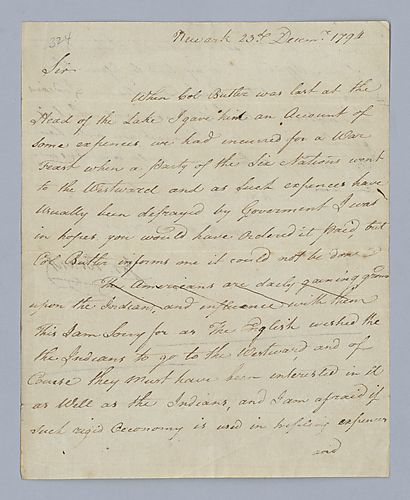 324
Newark 23d. Decmr. 1794
Sir
When Col Butler was last at the
Head of the Lake I gave him an Account of
Some expences we had incurred for a War
Feast when a Party of the Six Nations went
to the Westward and as Such expences have
Usually been defrayed by Goverment I was
in hopes you would have Ordered it Paid, but
Col Butler informs me it could not be done
The Americans are daily gaining ground
upon the Indians, and influence with them
This I am Sorry for as The English wished the
the Indians to go to the Westward and of
Course they Must have been interested in it
as Well as the Indians, and I am afraid if
Such rigid Oeconomy is used in refusing expences
and